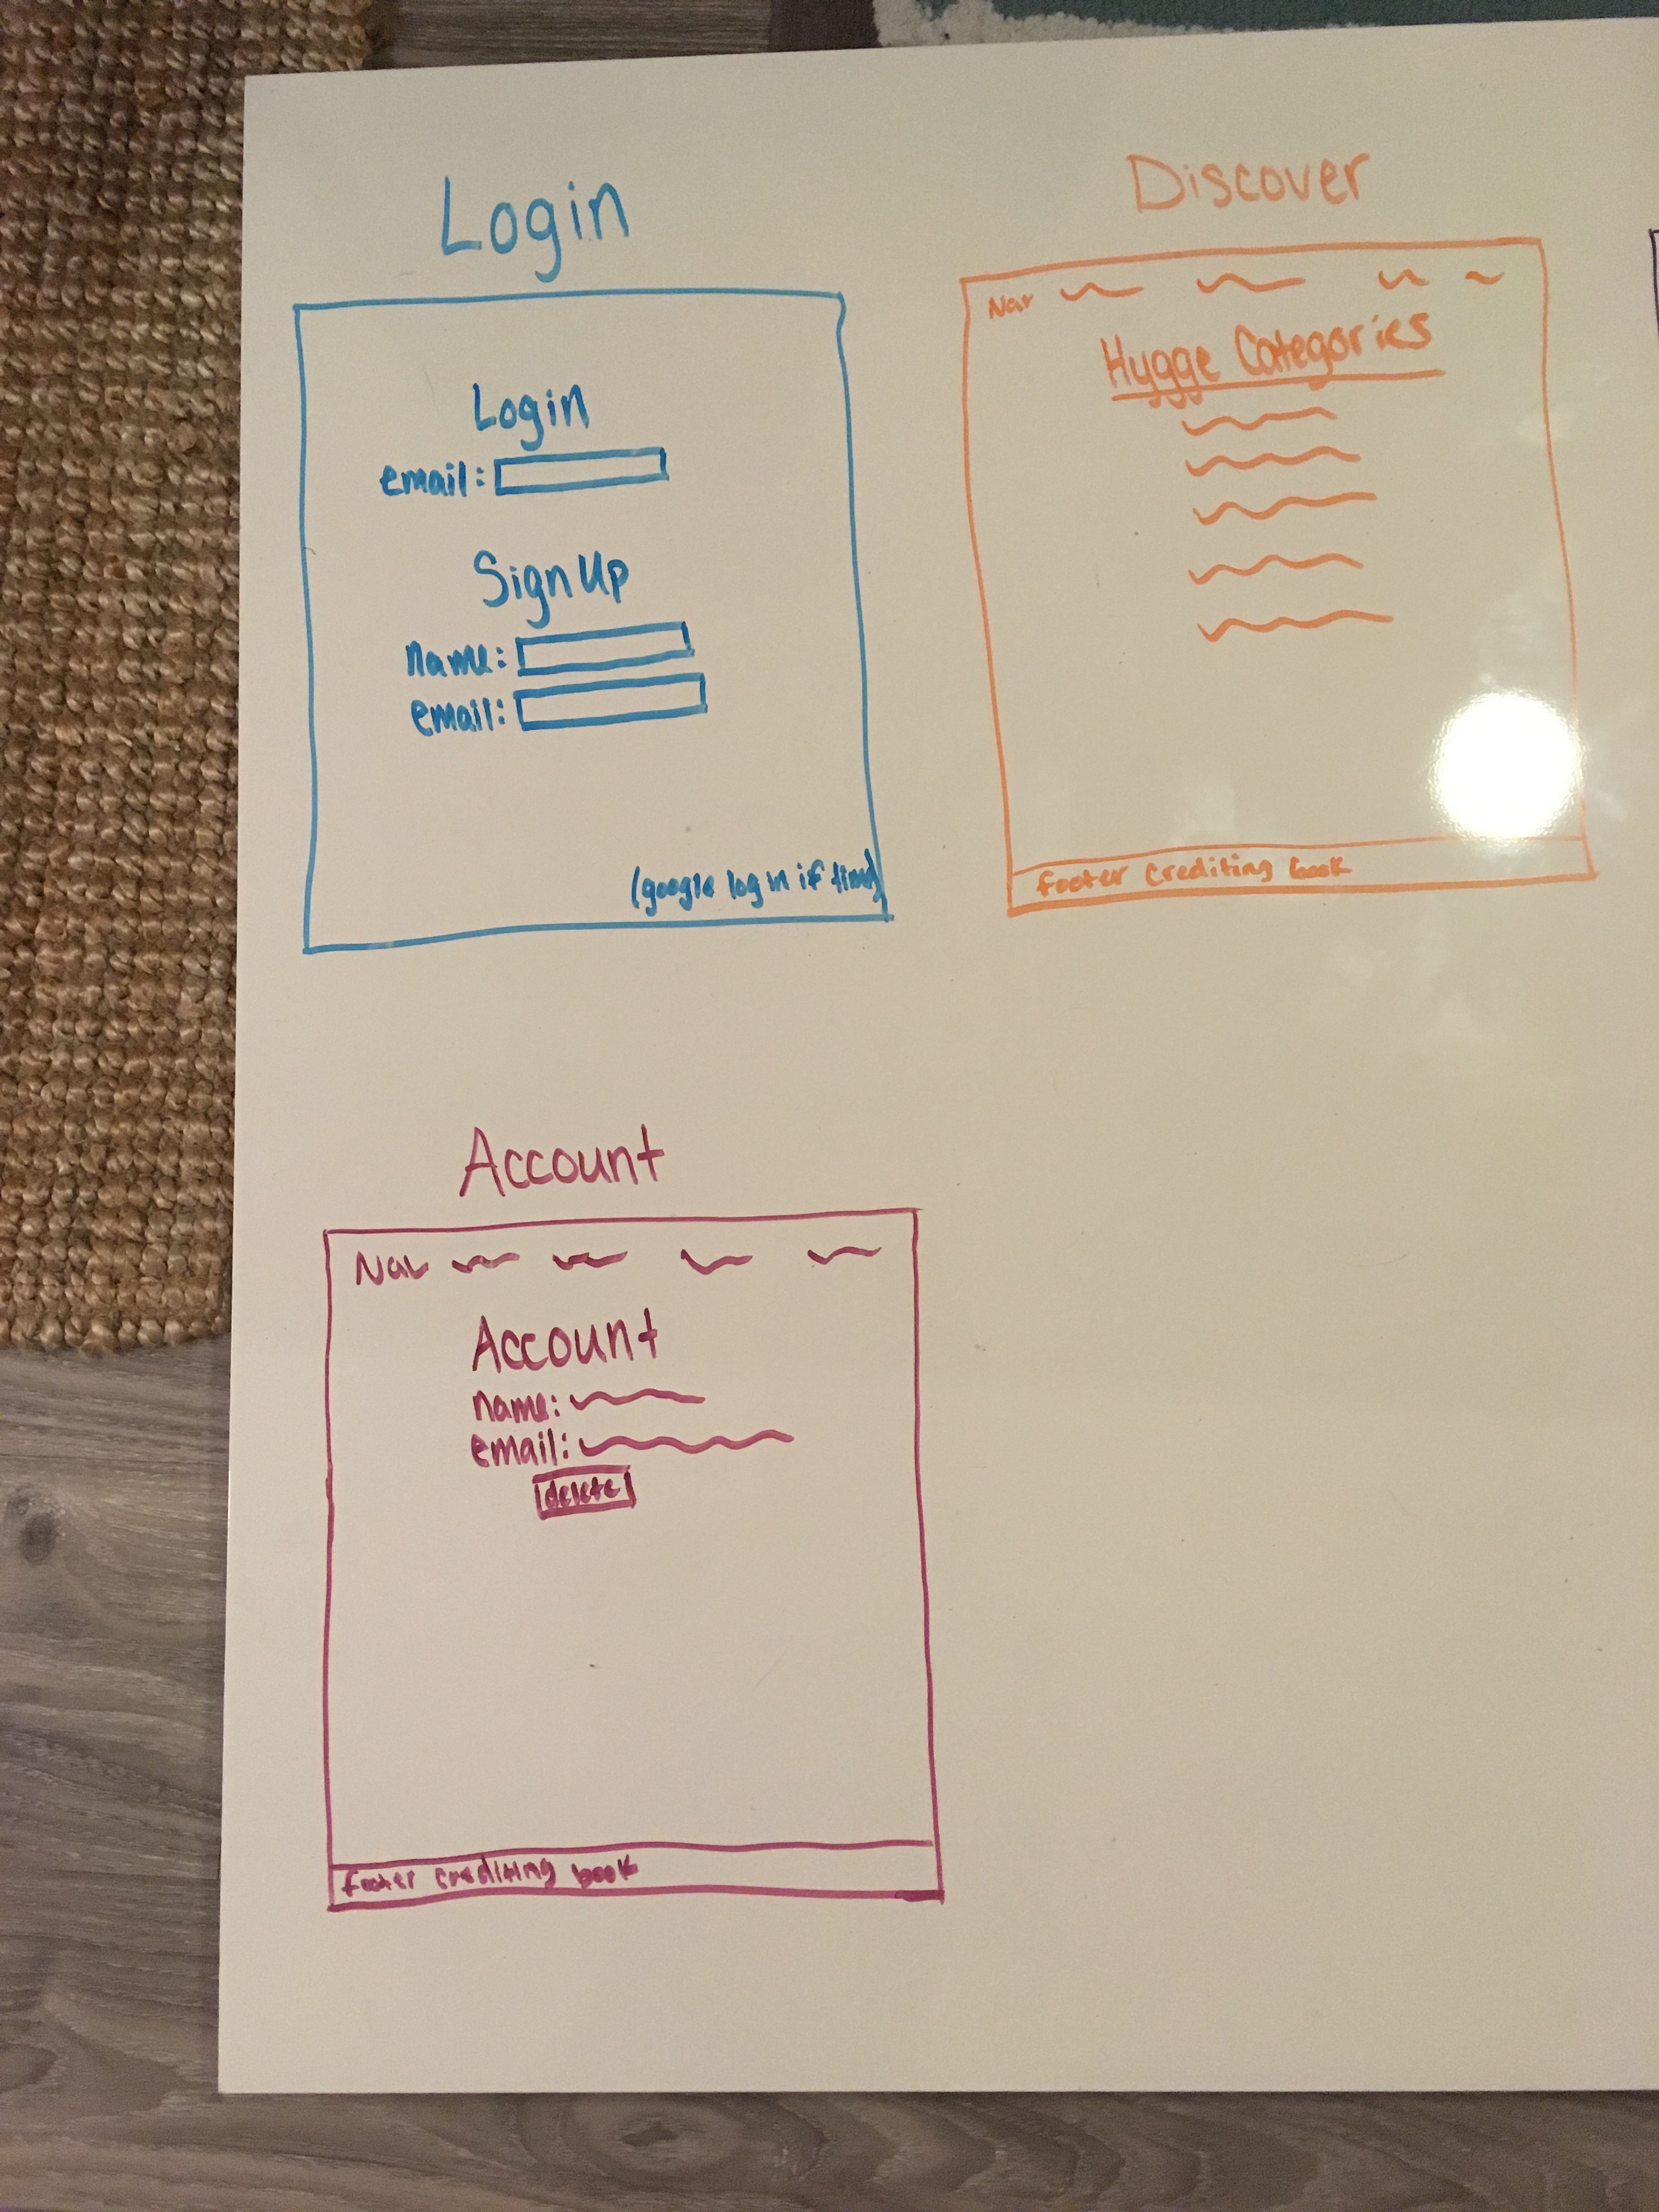 Login
Login
email:
Sign Up
name:
email:
(google log in if time)
Discover
Nav
Hygge Categories
footer crediting book
Account
Nav
Account
name:
email:
delete
footer crediting book